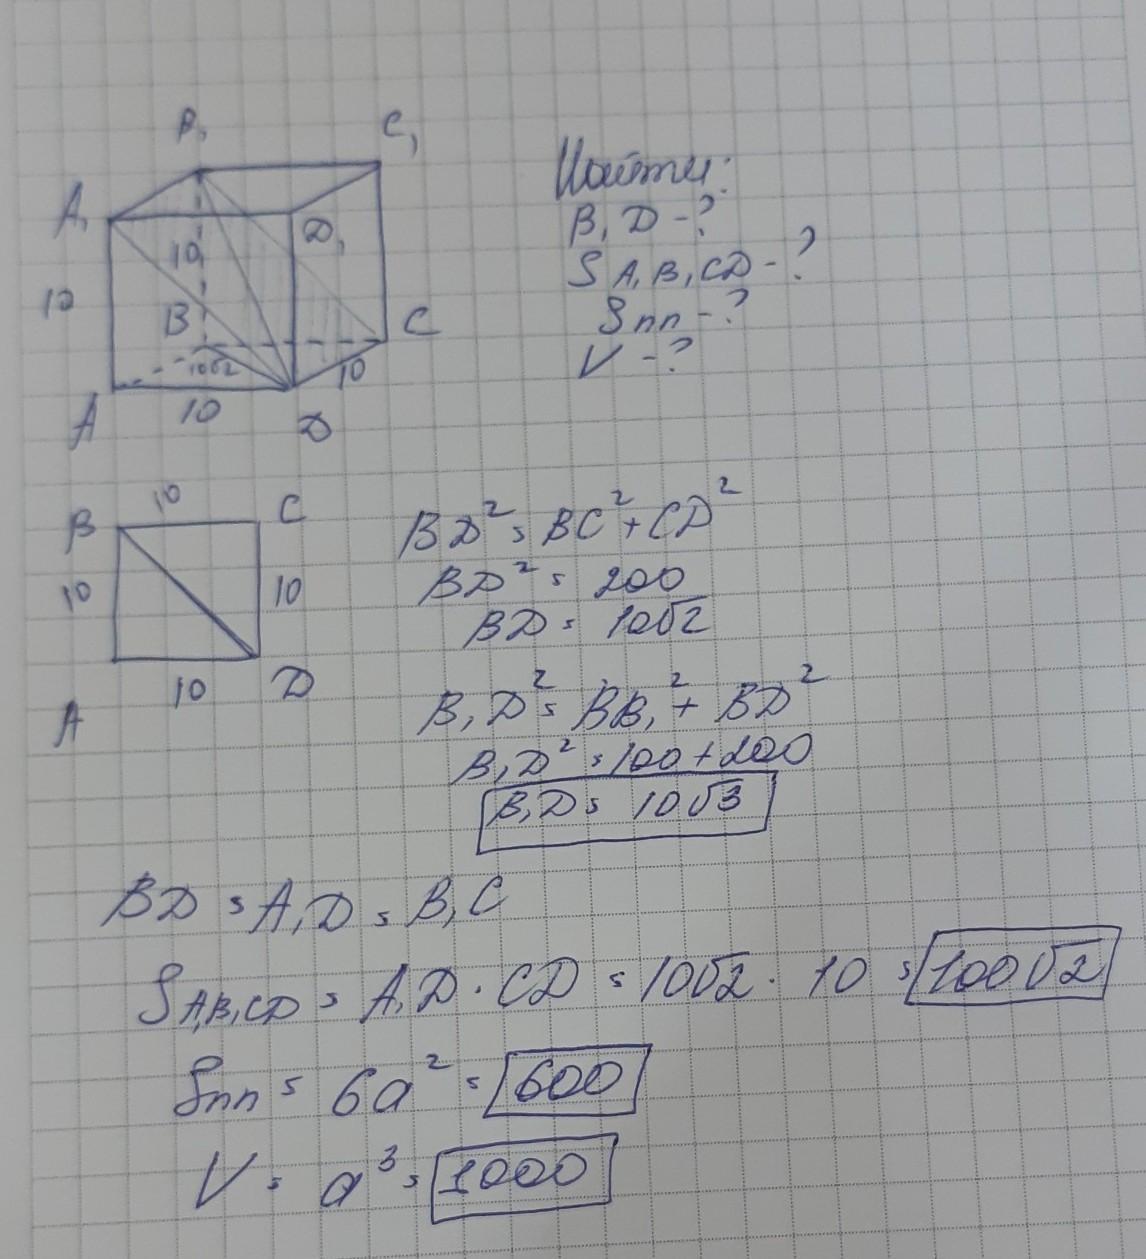 B₁ C₁
A₁ D₁
10
10
B C
10√2 10
A 10 D
Найти:
B₁D - ?
S A₁B₁CD - ?
Sпп - ?
V - ?
10
B C
10 10
A 10 D
BD² = BC² + CD²
BD² = 200
BD = 10√2
B₁D² = BB₁² + BD²
B₁D² = 100 + 200
B₁D = 10√3
BD = A₁D = B₁C
S A₁B₁CD = A₁D · CD = 10√2 · 10 = 100√2
Sпп = 6a² = 600
V = a³ = 1000